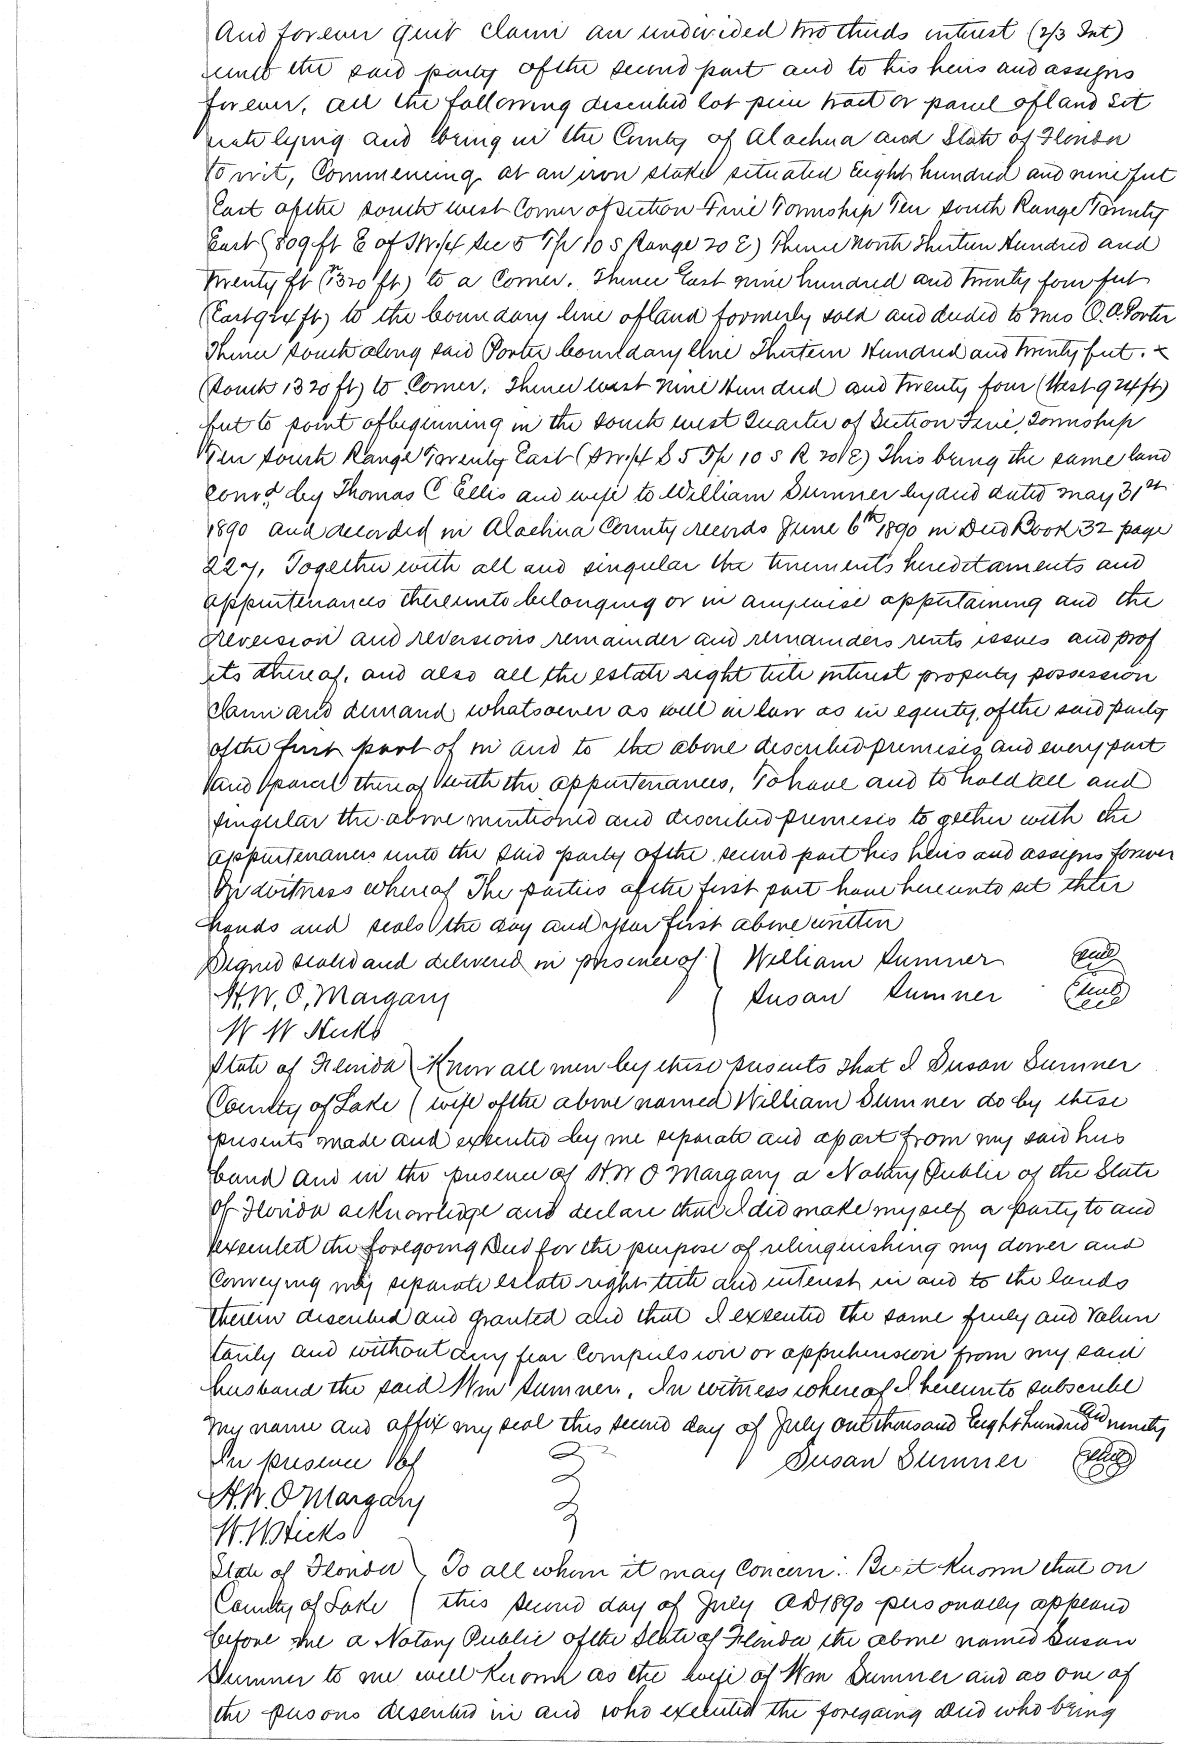 And forever quit claim an undivided two thirds interest (2/3 Int)
unto the said party of the second part and to his heirs and assigns
forever, all the following described lot piece tract or parcel of land sit
uate lying and being in the County of Alachua and State of Florida
to wit, Commencing at an iron stake situated Eight hundred and nine feet
East of the south west Corner of Section Five Township Ten south Range Twenty
East (809 ft E of SW 1/4 Sec 5 Tp 10 S Range 20 E) Thence North Thirteen Hundred and
twenty ft (1320 ft) to a Corner. Thence East nine hundred and twenty four feet
(East 924 ft) to the boundary line of land formerly sold and deeded to Mrs O. A. Porter
Thence South along said Porter boundary line Thirteen Hundred and twenty feet. x
(South 1320 ft) to Corner. Thence west Nine Hundred and twenty four (West 924 ft)
feet to point of beginning in the South west Quarter of Section Five, Township
Ten South Range Twenty East (SW 1/4 S 5 Tp 10 S R 20 E) This being the same land
Convd by Thomas C Ellis and wife to William Sumner by deed dated May 31st
1890 and recorded in Alachua County records June 6th 1890 in Deed Book 32 page
227, Together with all and singular the tenements hereditaments and
appurtenances thereunto belonging or in anywise appertaining and the
reversion and reversions remainder and remainders rents issues and prof
its thereof, and also all the estate right title interest property possession
claim and demand whatsoever as well in law as in equity, of the said party
of the first part of in and to the above described premises and every part
and parcel thereof with the appurtenances, To have and to hold all and
singular the above mentioned and described premises to gether with the
appurtenances unto the said party of the second part his heirs and assigns forever
In witness whereof The parties of the first part have hereunto set their
hands and seals the day and year first above written
Signed sealed and delivered in presence of ( William Sumner (seal)
H. W. O. Margary ( Susan Sumner (seal)
W W Hicks
State of Florida ) Know all men by these presents that I Susan Sumner
County of Lake ( wife of the above named William Sumner do by these
presents made and executed by me separate and apart from my said hus
band and in the presence of H. W O Margary a Notary Public of the State
of Florida acknowledge and declare that I did make myself a party to and
executed the foregoing Deed for the purpose of relinquishing my dower and
Conveying my separate estate right title and interest in and to the lands
therein described and granted and that I executed the same freely and Volun
tarily and without any fear Compulsion or apprehension from my said
husband the said Wm Sumner. In witness whereof I hereunto subscribe
my name and affix my seal this second day of July one thousand Eight hundred and ninety
In presence of Susan Sumner (seal)
H. W. O Margary
W. W Hicks
State of Florida ) To all whom it may Concern: Be it Known that on
County of Lake ( this second day of July AD 1890 personally appeared
before me a Notary Public of the State of Florida the above named Susan
Sumner to me well Known as the wife of Wm Sumner and as one of
the persons described in and who executed the foregoing deed who being